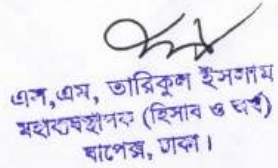 এস,এম, তারিকুল ইসলাম
মহাব্যবস্থাপক (হিসাব ও অর্থ)
বাপেক্স, ঢাকা।